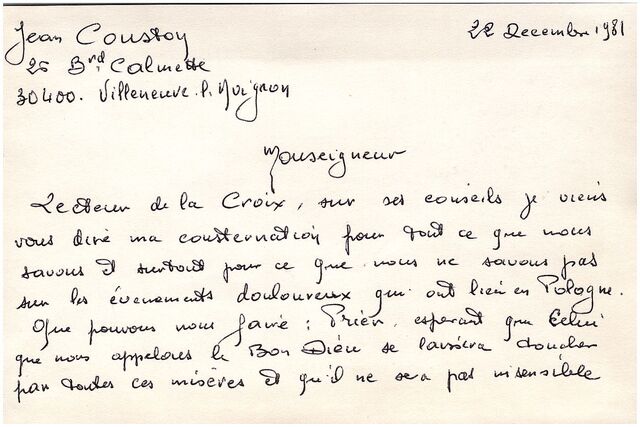 Jean Coustoy
22 Decembre 1981
26 Brd Calmette
30400. Villeneuve. l. Avignon
Monseigneur
Lecteur de la Croix, sur ses conseils je viens
vous dire ma consternation pour tout ce que nous
savons et surtout pour ce que nous ne savons pas
sur les évenements douloureux qui ont lieu en Pologne.
Que pouvons nous faire : Prier, esperant que Celui
que nous appelons le Bon Dieu se laissera toucher
par toutes ces misères et qu'il ne sera pas insensible